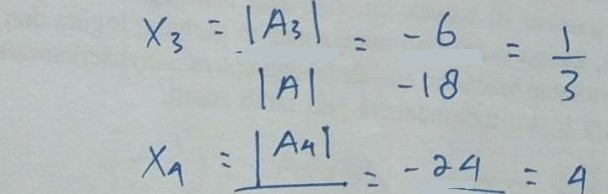 X3 = |A3| = -6 = 1
|A| -18 3
X4 = |A4| = -24 = 4